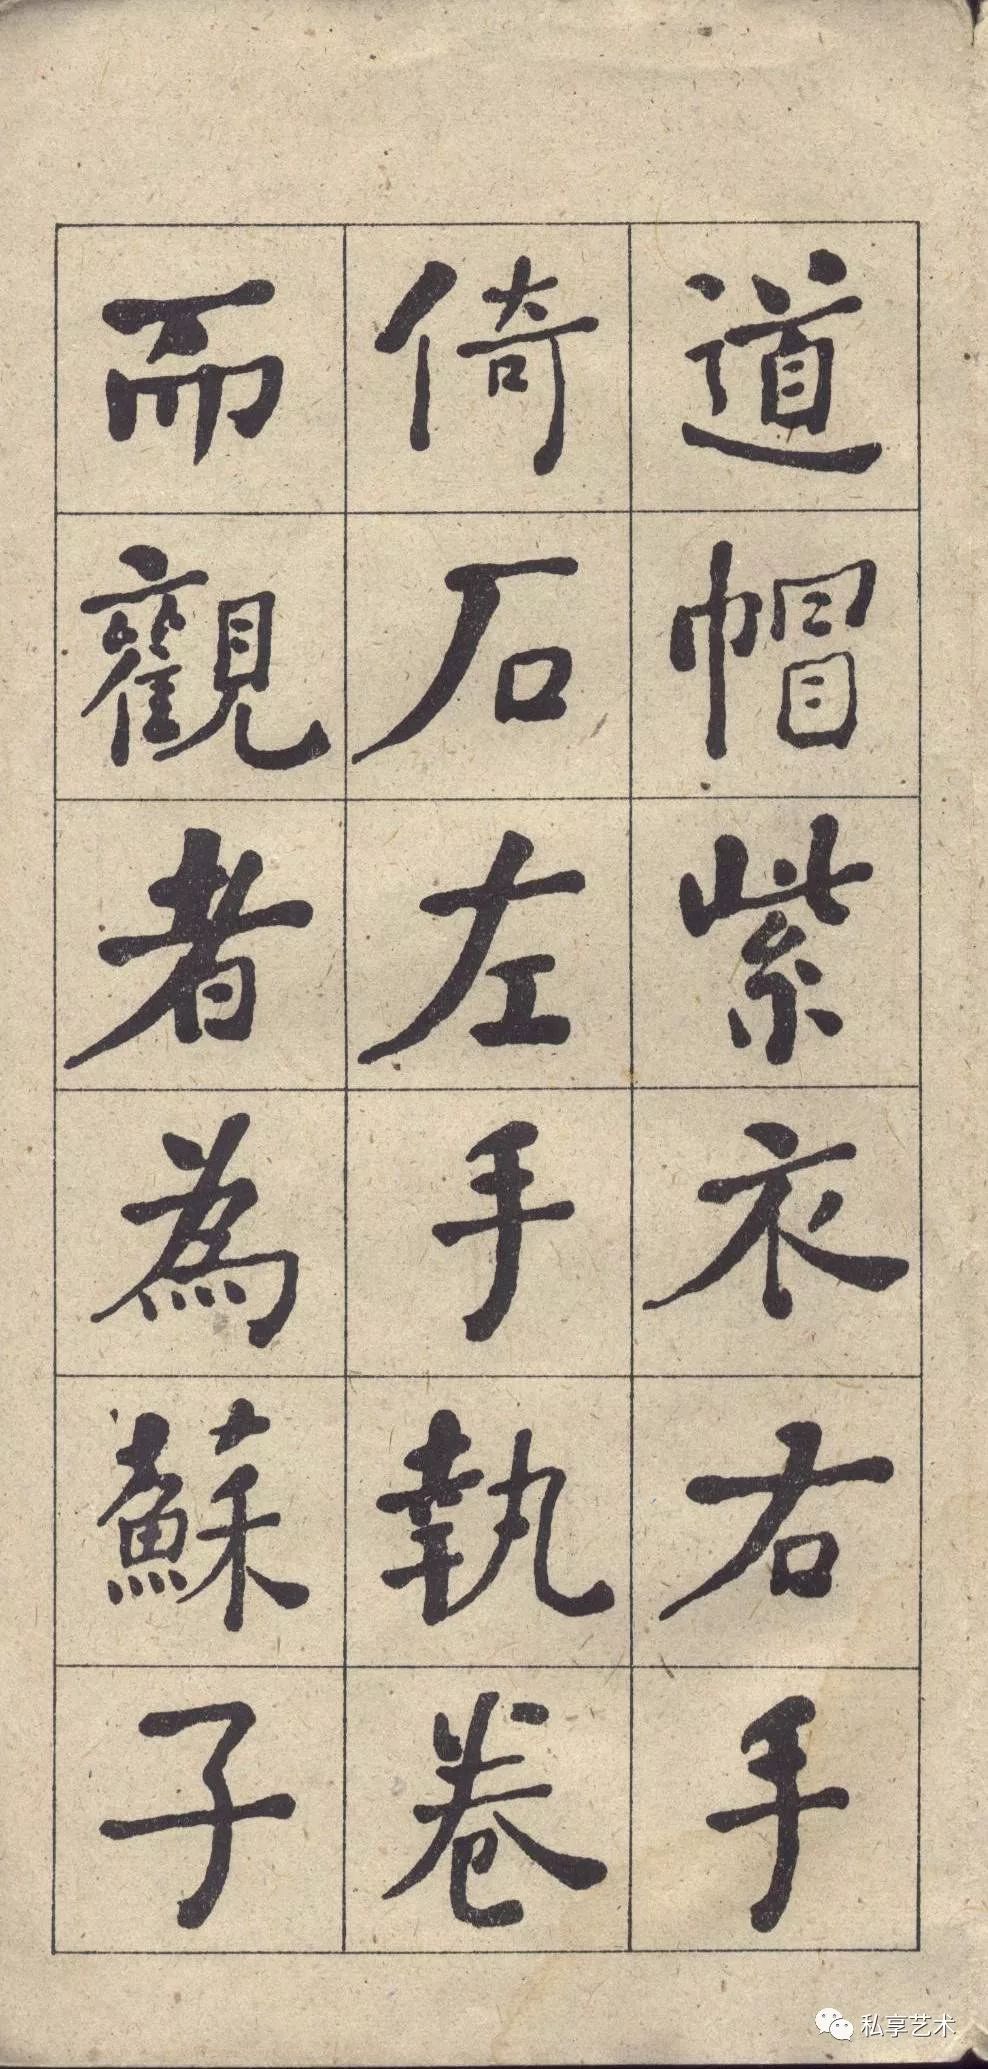 道帽紫衣右手
倚石左手執卷
而觀者為蘇子
私享艺术